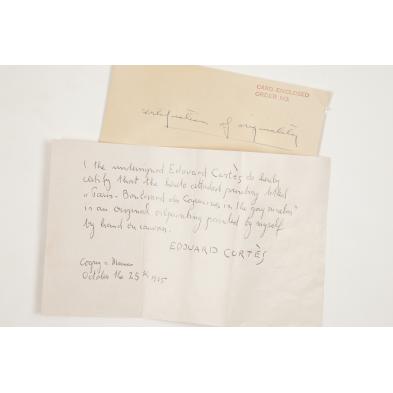 CARD ENCLOSED
ORDER NO.
certification of originality
I the undersigned Edouard Cortès do hereby
certify that the hereto attached painting titled
"Paris - Boulevard des Capucines in the gay nineties"
is an original oilpainting painted by myself
by hand on canvas.
EDOUARD CORTÈS
October the 25th